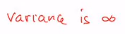 Variance is ∞